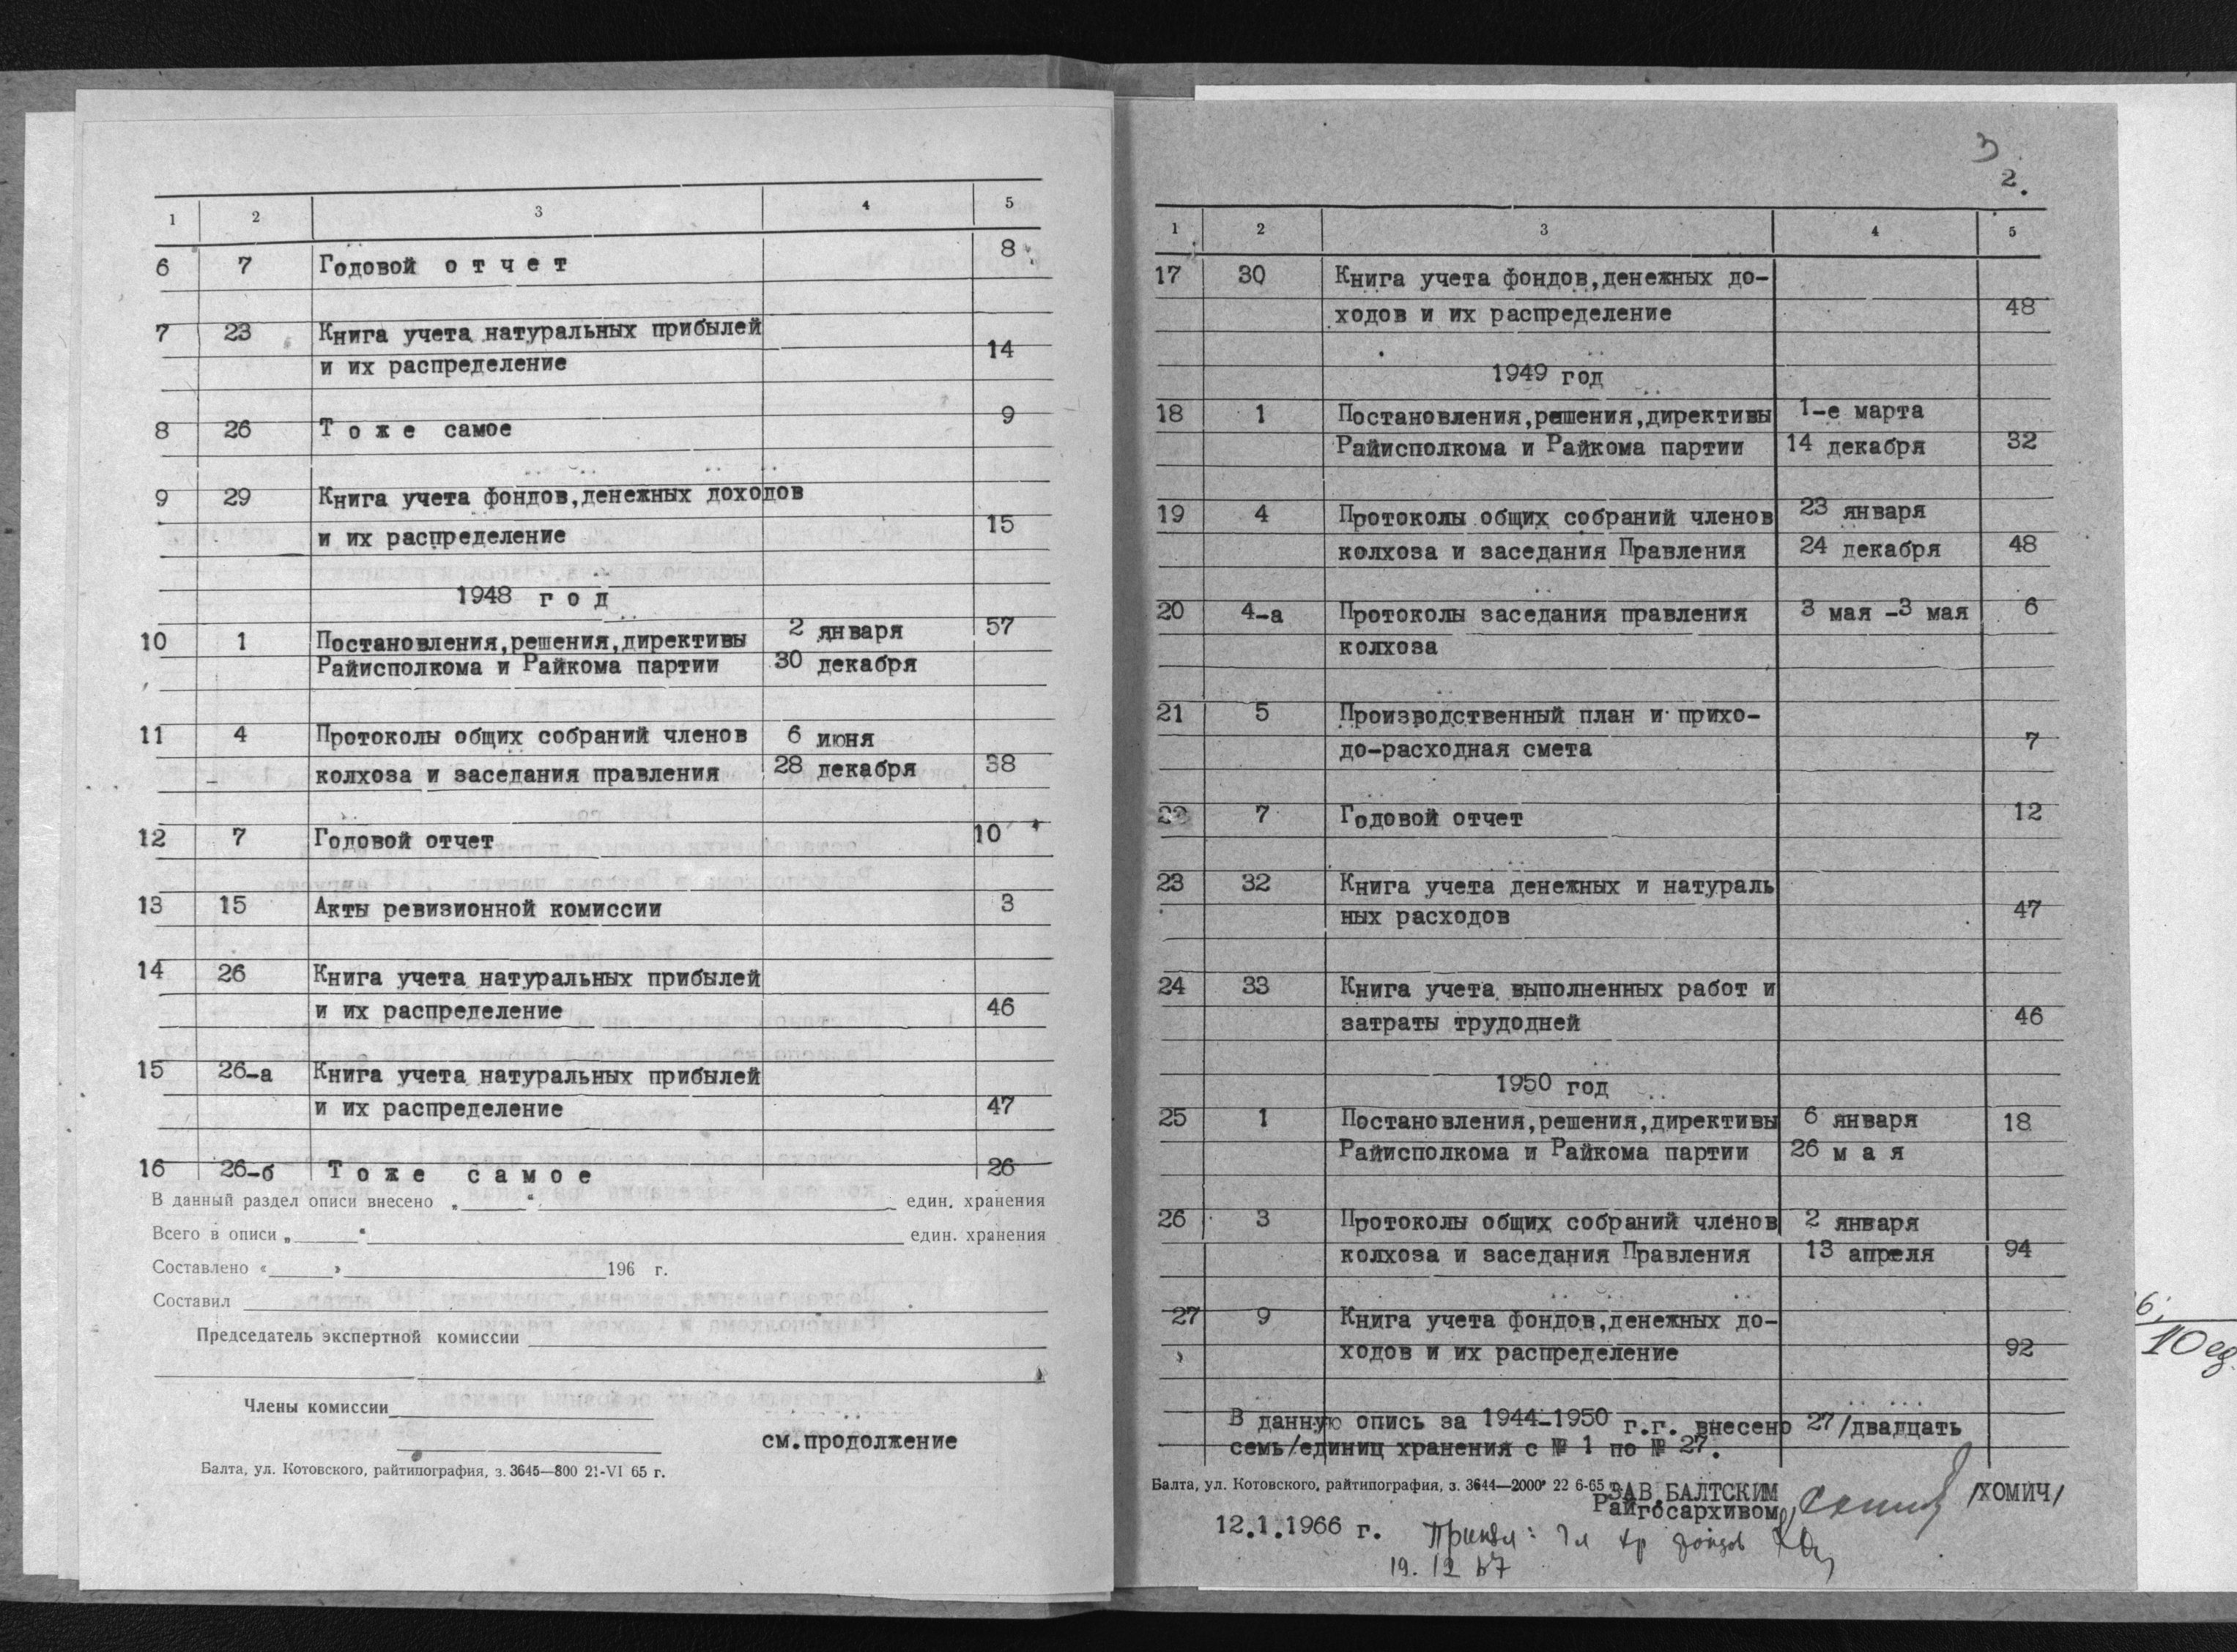 1 2 3 4 5
6 7 Годовой о т ч е т 8
7 23 Книга учета натуральных прибылей
и их распределение 14
8 26 Т о ж е самое 9
9 29 Книга учета фондов,денежных доходов
и их распределение 15
1948 г о д
10 1 Постановления,решения,директивы 2 января 57
Райисполкома и Райкома партии 30 декабря
11 4 Протоколы общих собраний членов 6 июня
колхоза и заседания правления 28 декабря 38
12 7 Годовой отчет 10
13 15 Акты ревизионной комиссии 3
14 26 Книга учета натуральных прибылей
и их распределение 46
15 26-а Книга учета натуральных прибылей
и их распределение 47
16 26-б Т о ж е с а м о е 26
В данный раздел описи внесено „ “ един. хранения
Всего в описи „ “ един. хранения
Составлено « » 196 г.
Составил
Председатель экспертной комиссии
Члены комиссии
см.продолжение
Балта, ул. Котовского, райтипография, з. 3645—800 21-VI 65 г.
3
2.
1 2 3 4 5
17 30 Книга учета фондов,денежных до-
ходов и их распределение 48
1949 год
18 1 Постановления,решения,директивы 1-е марта
Райисполкома и Райкома партии 14 декабря 32
19 4 Протоколы общих собраний членов 23 января
колхоза и заседания Правления 24 декабря 48
20 4-а Протоколы заседания правления 3 мая -3 мая 6
колхоза
21 5 Производственный план и прихо-
до-расходная смета 7
22 7 Годовой отчет 12
23 32 Книга учета денежных и натураль
ных расходов 47
24 33 Книга учета выполненных работ и
затраты трудодней 46
1950 год
25 1 Постановления,решения,директивы 6 января 18
Райисполкома и Райкома партии 26 м а я
26 3 Протоколы общих собраний членов 2 января
колхоза и заседания Правления 13 апреля 94
27 9 Книга учета фондов,денежных до-
ходов и их распределение 92
В данную опись за 1944-1950 г.г. внесено 27/двадцать
семь/единиц хранения с № 1 по № 27.
Балта, ул. Котовского, райтипография, з. 3644—2000 22 6-65 г.
ЗАВ.БАЛТСКИМ
Райгосархивом /ХОМИЧ/
12.1.1966 г.
19. 12 67
10 ед.